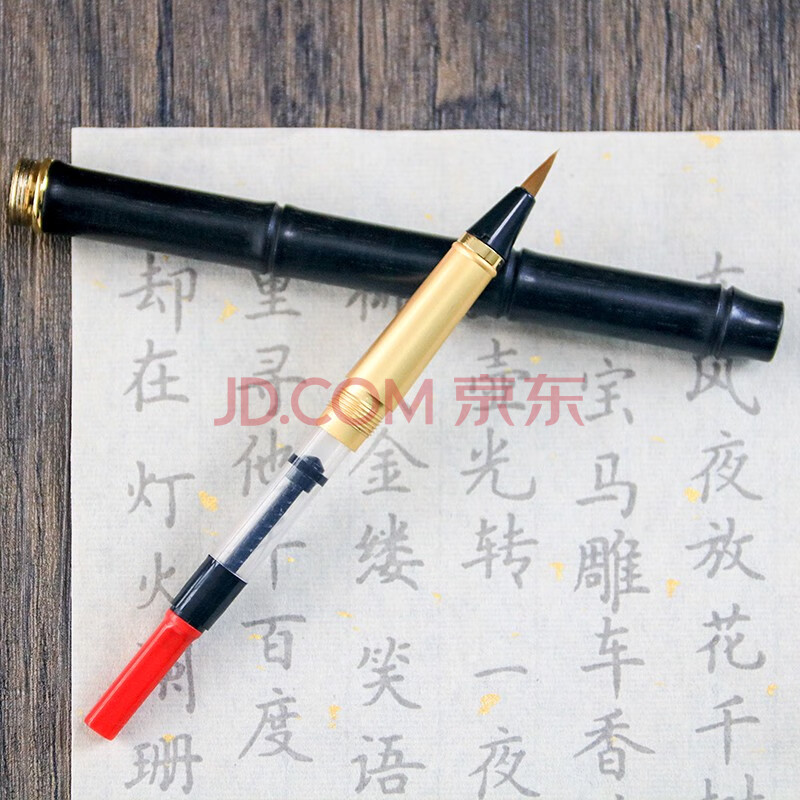 东风夜放花千树
宝马雕车香
壶光转 一夜
柳金缕 笑语
里寻他千百度
却在 灯火阑珊
JD.COM 京东